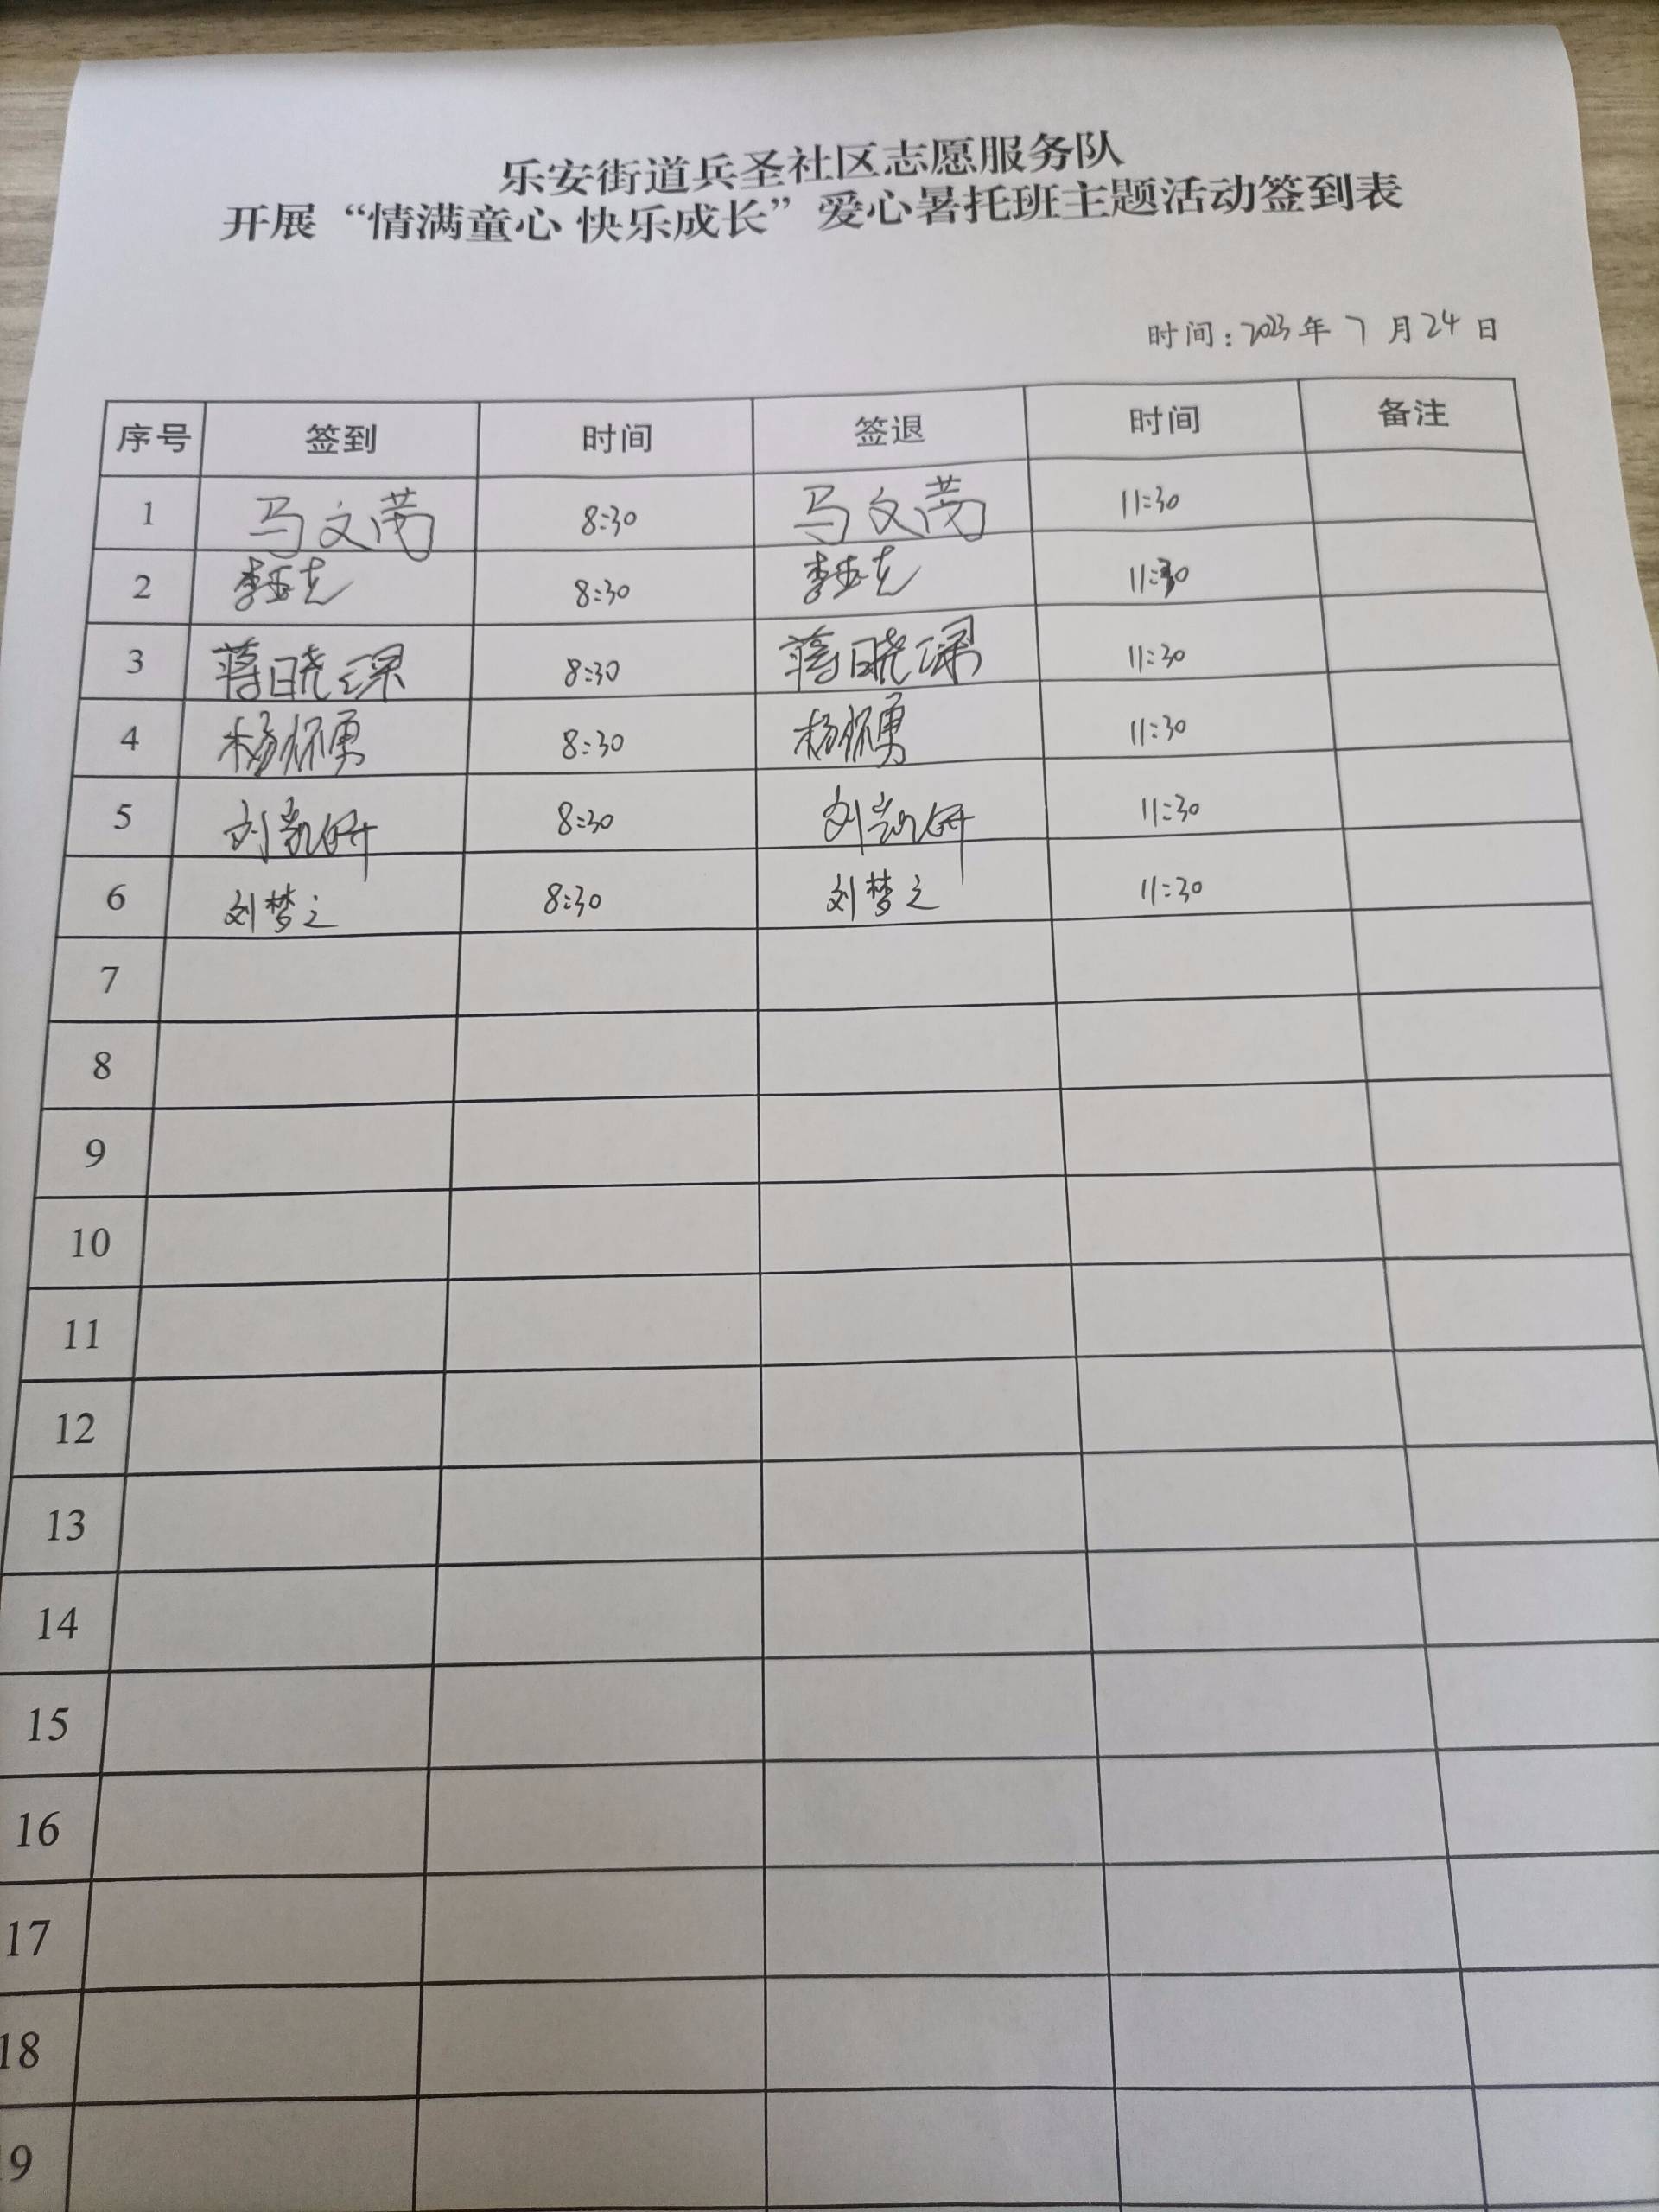 乐安街道兵圣社区志愿服务队
开展“情满童心 快乐成长”爱心暑托班主题活动签到表
时间:2023年7月24日
序号 签到 时间 签退 时间 备注
1 马文 8:30 马文 11:30
2 李亚 8:30 李亚 11:30
3 蒋晓琛 8:30 蒋晓琛 11:30
4 杨怀勇 8:30 杨怀勇 11:30
5 刘凯妍 8:30 刘凯妍 11:30
6 刘梦之 8:30 刘梦之 11:30
7
8
9
10
11
12
13
14
15
16
17
18
19